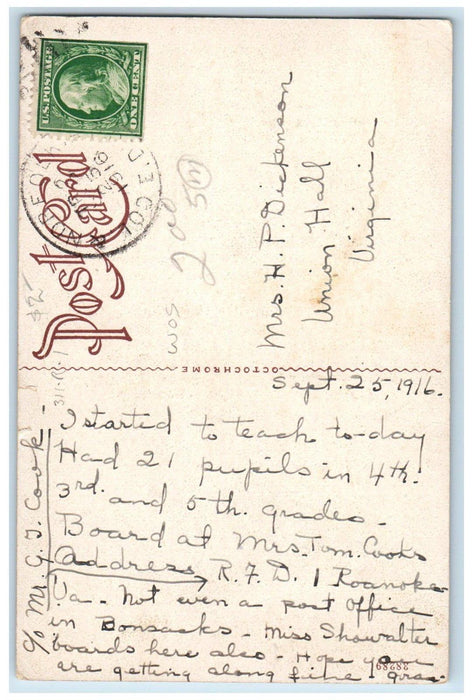 U.S. POSTAGE
ONE CENT
Post Card
OCTOCHROME
Mrs. H. P. Dickenson
Union Hall
Virginia
Sept. 25, 1916.
I started to teach to-day
Had 21 pupils in 4th.
3rd. and 5th. grades -
Board at Mrs. Tom. Cooks
Address R. F. D. 1 Roanoke
Va - Not even a post office
in Bonsacks - Miss Showalter
boards here also - Hope you
are getting along fine -
c/o Mr. G. T. Cook